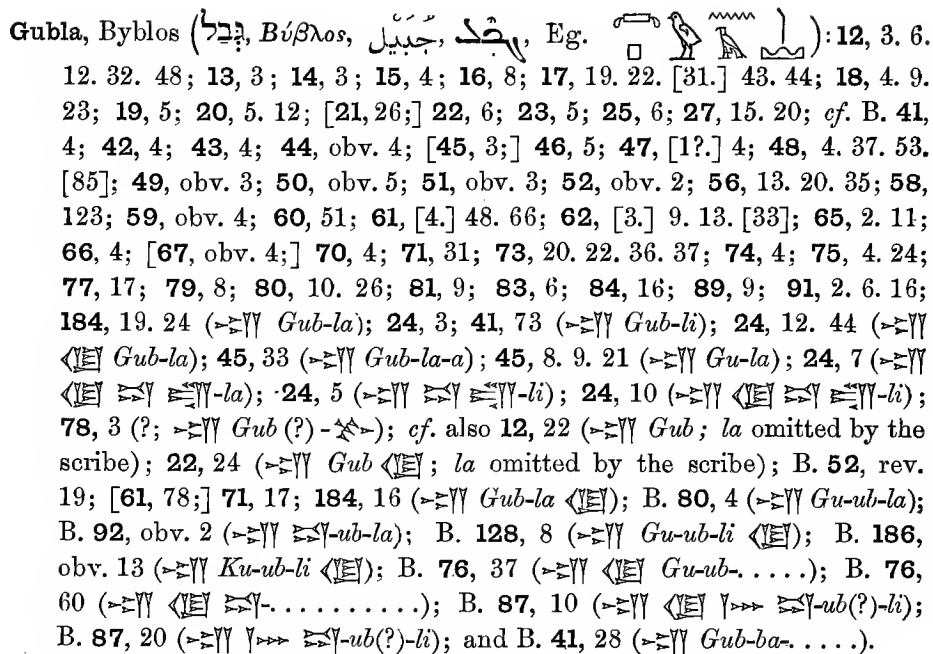 Gubla, Byblos (גְּבַל, Βύβλος, جُبَيْل, ܓܒܠ, Eg. ): 12, 3. 6.
12. 32. 48; 13, 3; 14, 3; 15, 4; 16, 8; 17, 19. 22. [31.] 43. 44; 18, 4. 9.
23; 19, 5; 20, 5. 12; [21, 26;] 22, 6; 23, 5; 25, 6; 27, 15. 20; cf. B. 41,
4; 42, 4; 43, 4; 44, obv. 4; [45, 3;] 46, 5; 47, [1?.] 4; 48, 4. 37. 53.
[85]; 49, obv. 3; 50, obv. 5; 51, obv. 3; 52, obv. 2; 56, 13. 20. 35; 58,
123; 59, obv. 4; 60, 51; 61, [4.] 48. 66; 62, [3.] 9. 13. [33]; 65, 2. 11;
66, 4; [67, obv. 4;] 70, 4; 71, 31; 73, 20. 22. 36. 37; 74, 4; 75, 4. 24;
77, 17; 79, 8; 80, 10. 26; 81, 9; 83, 6; 84, 16; 89, 9; 91, 2. 6. 16;
184, 19. 24 (𒌷 Gub-la); 24, 3; 41, 73 (𒌷 Gub-li); 24, 12. 44 (𒌷
𒆠 Gub-la); 45, 33 (𒌷 Gub-la-a); 45, 8. 9. 21 (𒌷 Gu-la); 24, 7 (𒌷
𒆠 𒄖 𒌒-la); 24, 5 (𒌷 𒄖 𒌒-li); 24, 10 (𒌷 𒆠 𒄖 𒌒-li);
78, 3 (?; 𒌷 Gub (?) -); cf. also 12, 22 (𒌷 Gub; la omitted by the
scribe); 22, 24 (𒌷 Gub 𒆠; la omitted by the scribe); B. 52, rev.
19; [61, 78;] 71, 17; 184, 16 (𒌷 Gub-la 𒆠); B. 80, 4 (𒌷 Gu-ub-la);
B. 92, obv. 2 (𒌷 𒄖-ub-la); B. 128, 8 (𒌷 Gu-ub-li 𒆠); B. 186,
obv. 13 (𒌷 Ku-ub-li 𒆠); B. 76, 37 (𒌷 𒆠 Gu-ub-.....); B. 76,
60 (𒌷 𒆠 𒄖-..........); B. 87, 10 (𒌷 𒆠 𒈨𒌍 𒄖-ub(?)-li);
B. 87, 20 (𒌷 𒈨𒌍 𒄖-ub(?)-li); and B. 41, 28 (𒌷 Gub-ba-.....).